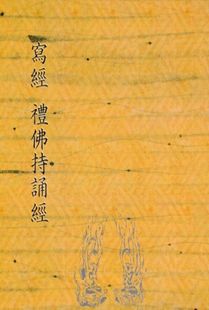 寫經 禮佛持誦經